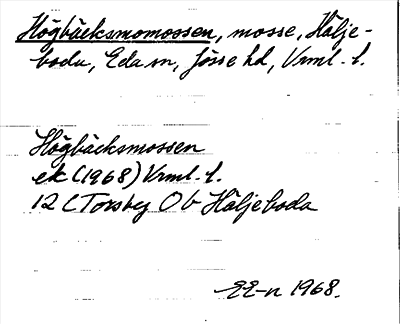 Högbäcksmomossen, mosse, Hälje-
boda, Eda sn, Jösse hd, Vrml. l.
Högbäcksmossen
ek (1968) Vrml. l.
12 C Torsby 0 b Häljeboda
EE-n 1968.